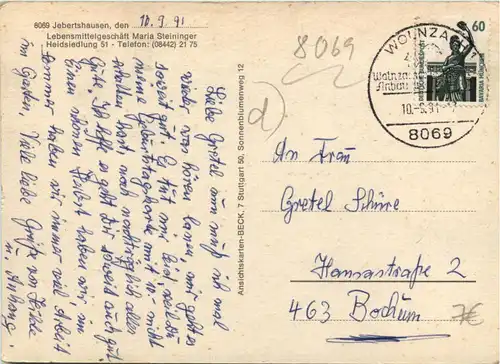 8069 Jebertshausen, den 10.9.91
Lebensmittelgeschäft Maria Steininger
Heidsiedlung 51 · Telefon: (08442) 21 75
Liebe Gretel nun muß ich mal
wieder von hören lassen mir geht es
soweit gut. Es tut mir leid, weil du
meine Geburtstagskarte mit 10.- nicht
erhalten hast, noch nachträglich alles
Gute. Ich hoffe es geht Dir soweit auch gut
Einen schönen Herbst haben wir, im
Sommer haben wir immer viel Arbeit
im Garten, Viele liebe Grüße von
u. Anhang
Ansichtskarten-BECK, 7 Stuttgart 50, Sonnenblumenweg 12
8069
d
WOLNZACH
Wolnzach
10.-9.91
8069
60
DEUTSCHE BUNDESPOST
BAVARIA MÜNCHEN
An Frau
Gretel Schüre
Hansastraße 2
463 Bochum
7€